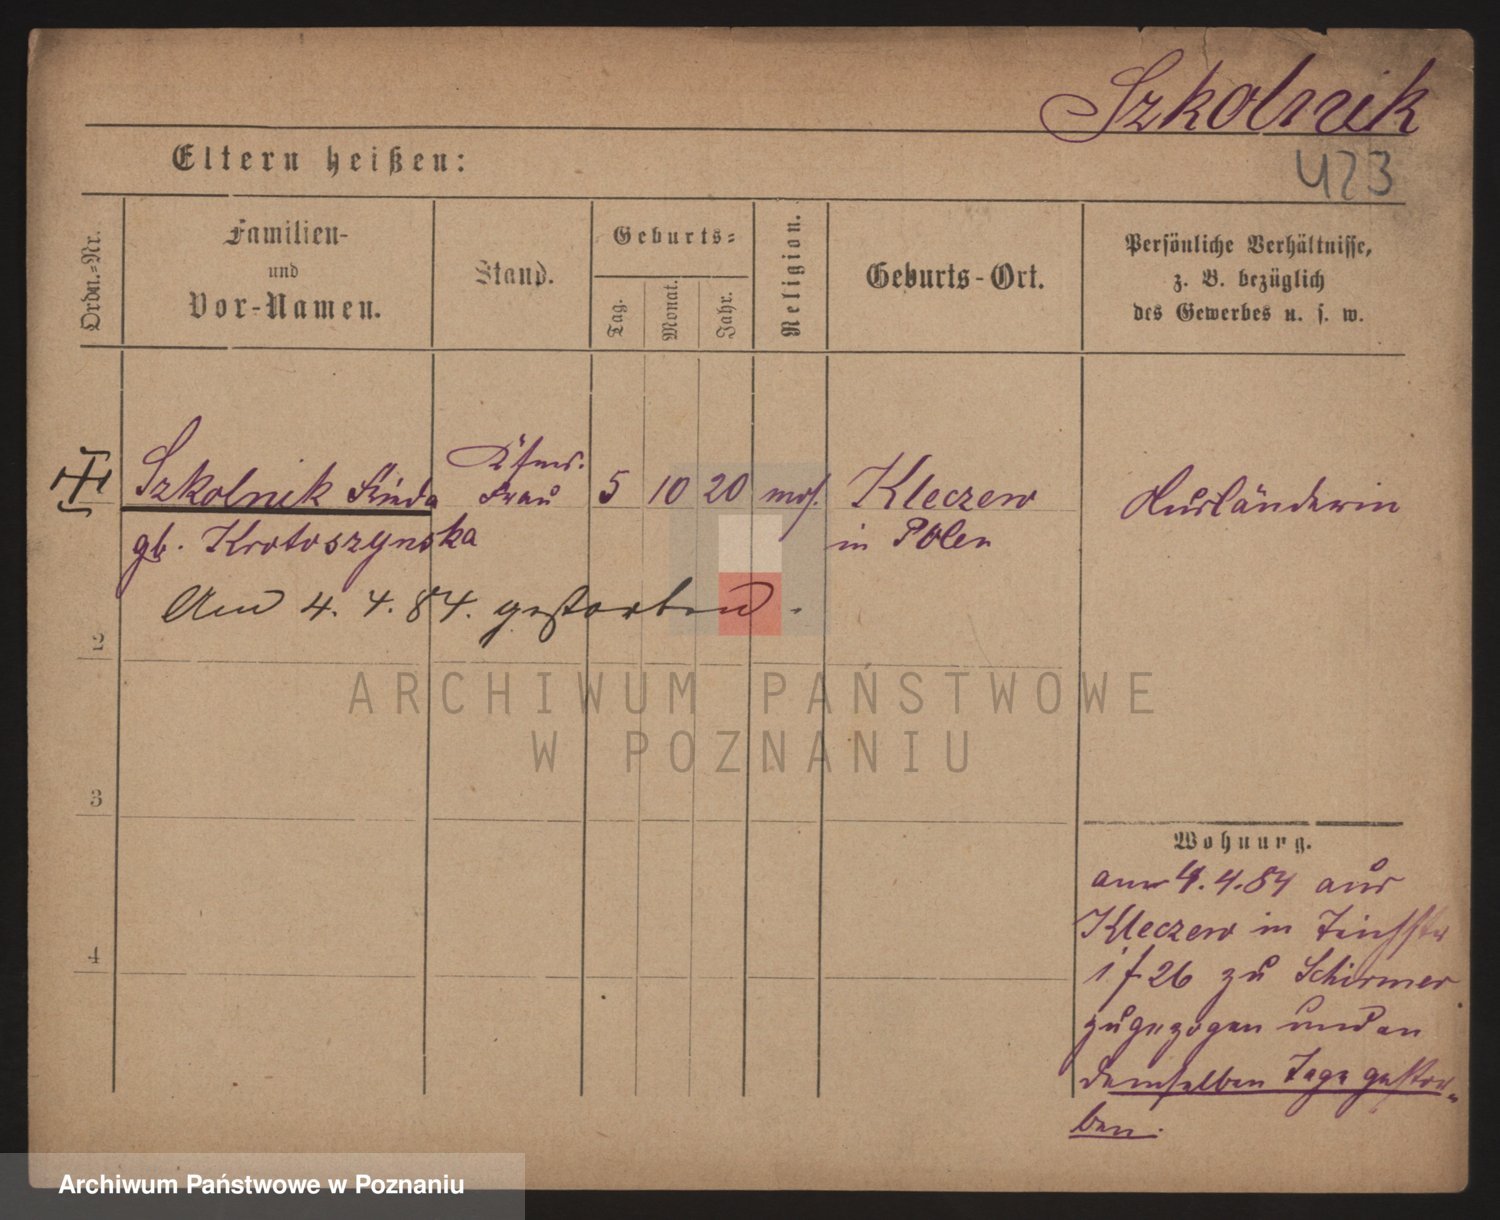 Szkolnik
423
Eltern heißen:
Ordn.-Nr.
Familien-
und
Vor-Namen.
Stand.
Geburts-
Tag.
Monat.
Jahr.
Religion.
Geburts-Ort.
Persönliche Verhältnisse,
z. B. bezüglich
des Gewerbes u. s. w.
Szkolnik
Frau
5 10 20 mos. Kleczew
Ausländerin
gb. Krotoszynska
in Polen
Am 4. 4. 84. gestorben.
2
ARCHIWUM PAŃSTWOWE
W POZNANIU
3
Wohnung.
am 4.4.84 aus
Kleczew in
26 zu Schirmer
zugezogen und an
demselben Tage gestor-
ben.
4
Archiwum Państwowe w Poznaniu